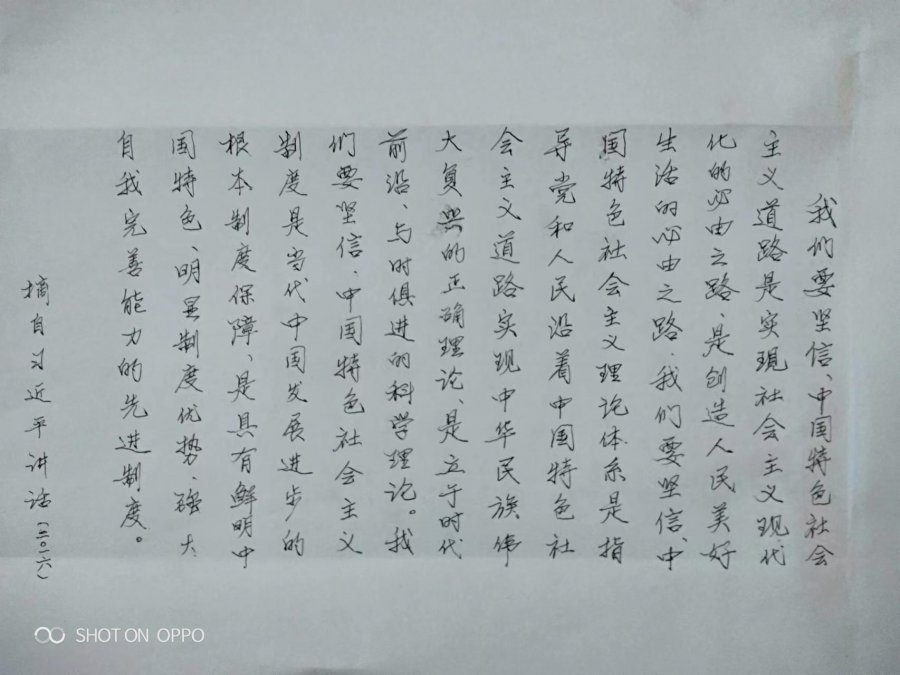 我们要坚信、中国特色社会
主义道路是实现社会主义现代
化的必由之路、是创造人民美好
生活的必由之路.我们要坚信、中
国特色社会主义理论体系是指
导党和人民沿着中国特色社
会主义道路实现中华民族伟
大复兴的正确理论、是立于时代
前沿、与时俱进的科学理论。我
们要坚信、中国特色社会主义
制度是当代中国发展进步的
根本制度保障、是具有鲜明中
国特色、明显制度优势、强大
自我完善能力的先进制度。
摘自习近平讲话(二〇一六)
SHOT ON OPPO